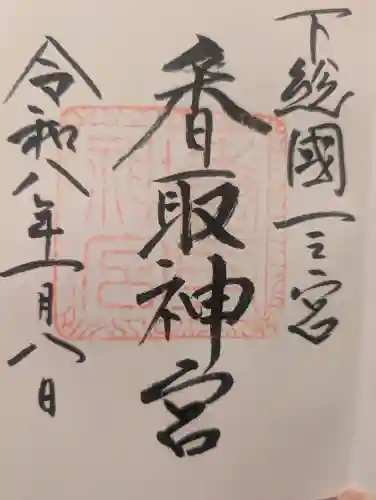 下総國一之宮
香取神宮
令和八年一月八日